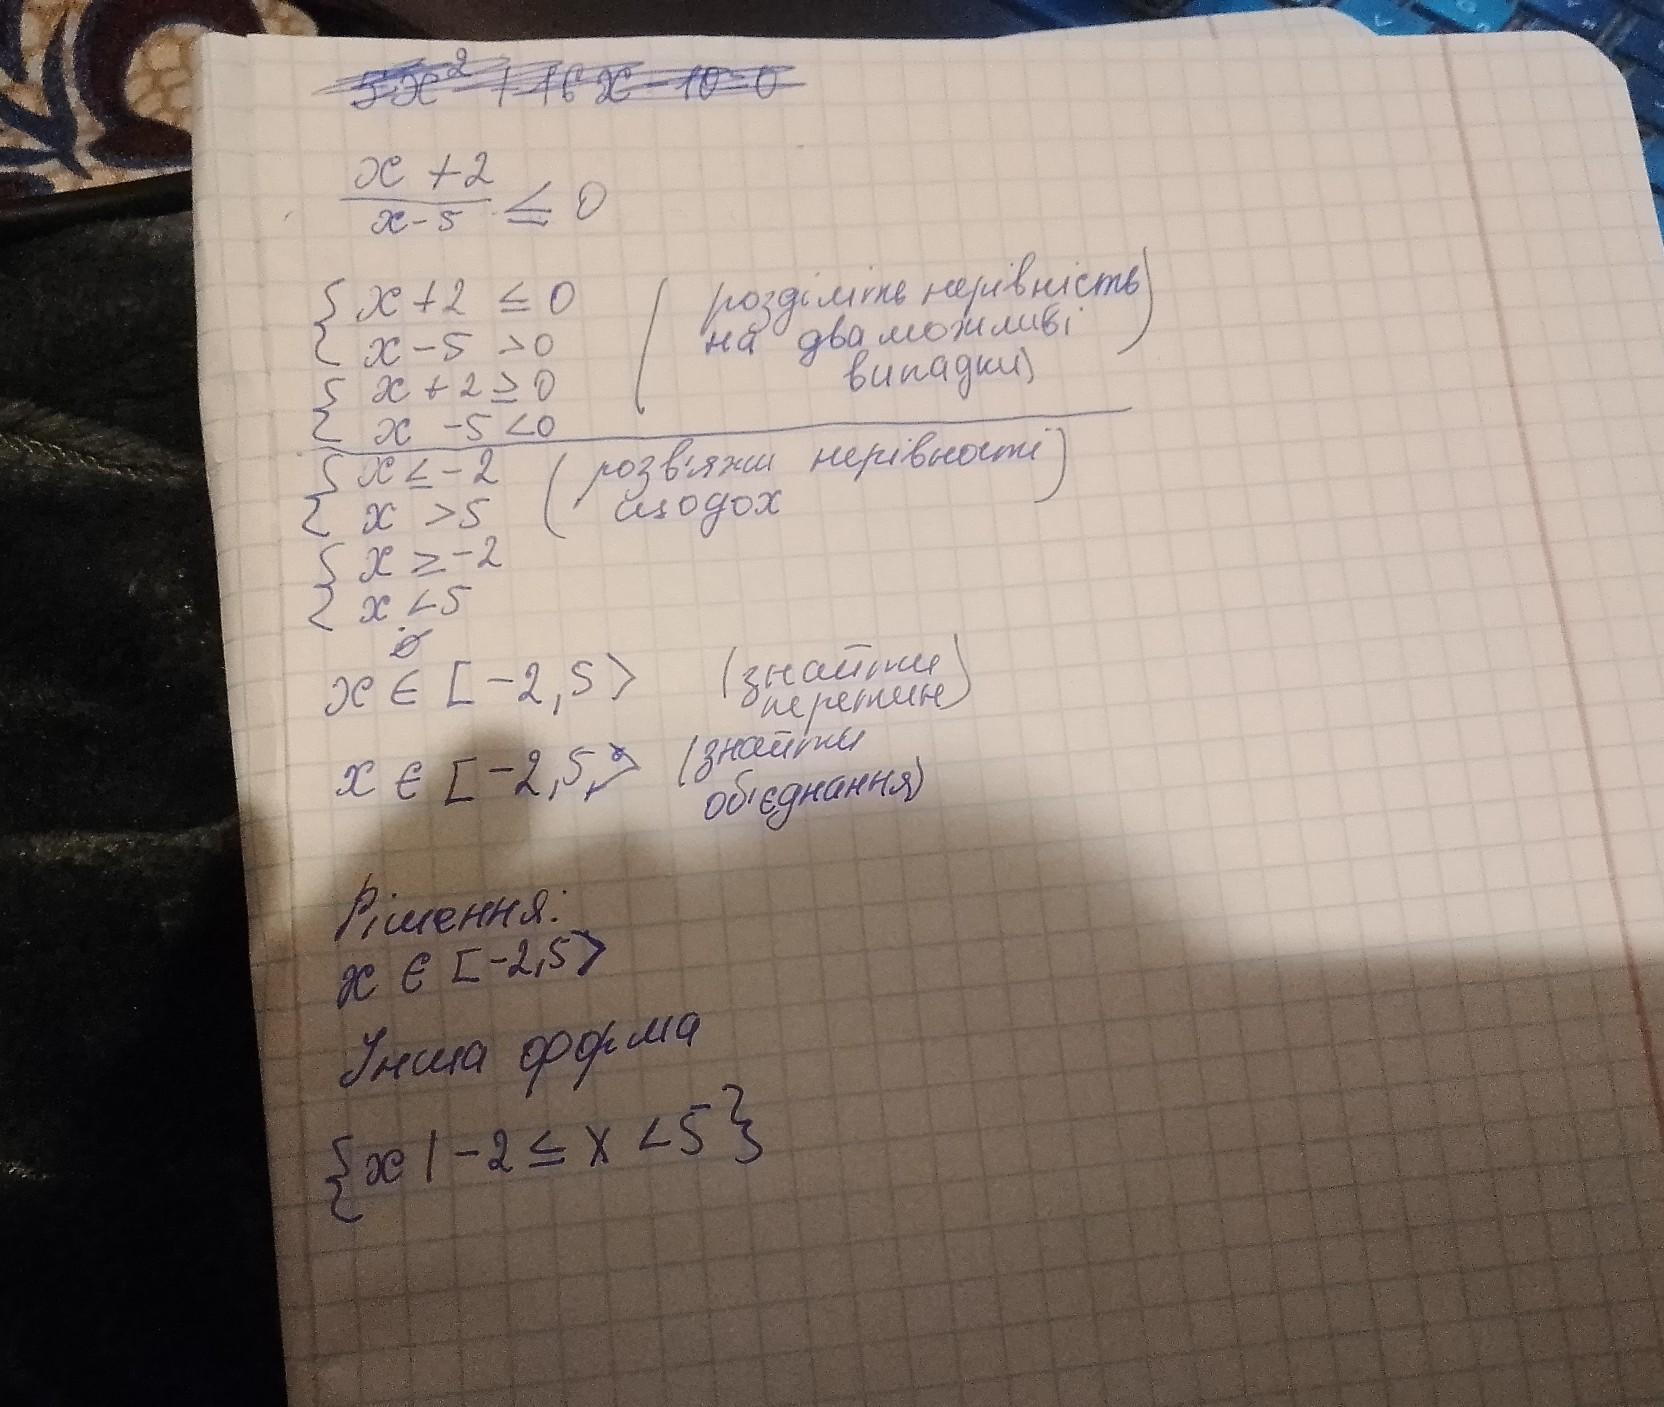 5x² + 16x - 10 = 0
x + 2
x - 5 ≤ 0
{ x + 2 ≤ 0
{ x - 5 > 0
(розділіть нерівність
на два можливі
випадки)
{ x + 2 ≥ 0
{ x - 5 < 0
{ x ≤ -2
{ x > 5
(розв'яжи нерівності
щодо x
{ x ≥ -2
{ x < 5
ø
x ∈ [-2, 5> (знайти
перетин)
x ∈ [-2, 5, > (знайти
об'єднання)
Рішення:
x ∈ [-2,5>
Інша форма
{x | -2 ≤ x < 5}